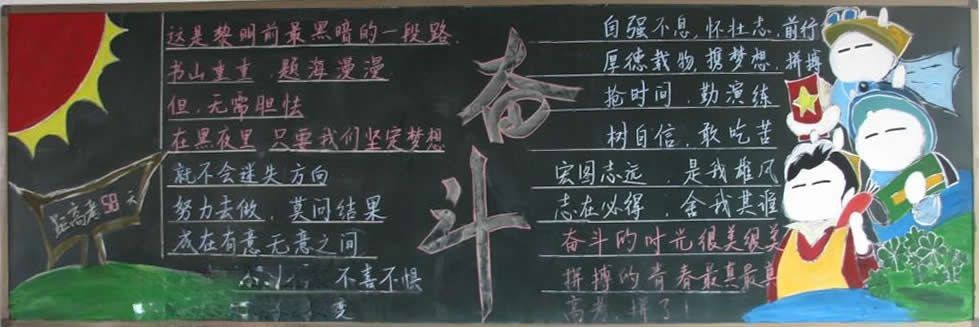 这是黎明前最黑暗的一段路.
书山重重，题海漫漫
但，无需胆怯
在黑夜里，只要我们坚定梦想
就不会迷失方向
努力去做，莫问结果
成在有意无意之间
不喜不惧
变
距高考59天
奋斗
自强不息，怀壮志，前行
厚德载物，携梦想，拼搏
抢时间，勤演练
树自信，敢吃苦
宏图志远，是我雄风
志在必得，舍我其谁
奋斗的时光很美很美
拼搏的青春最真最真
高考，拼了！